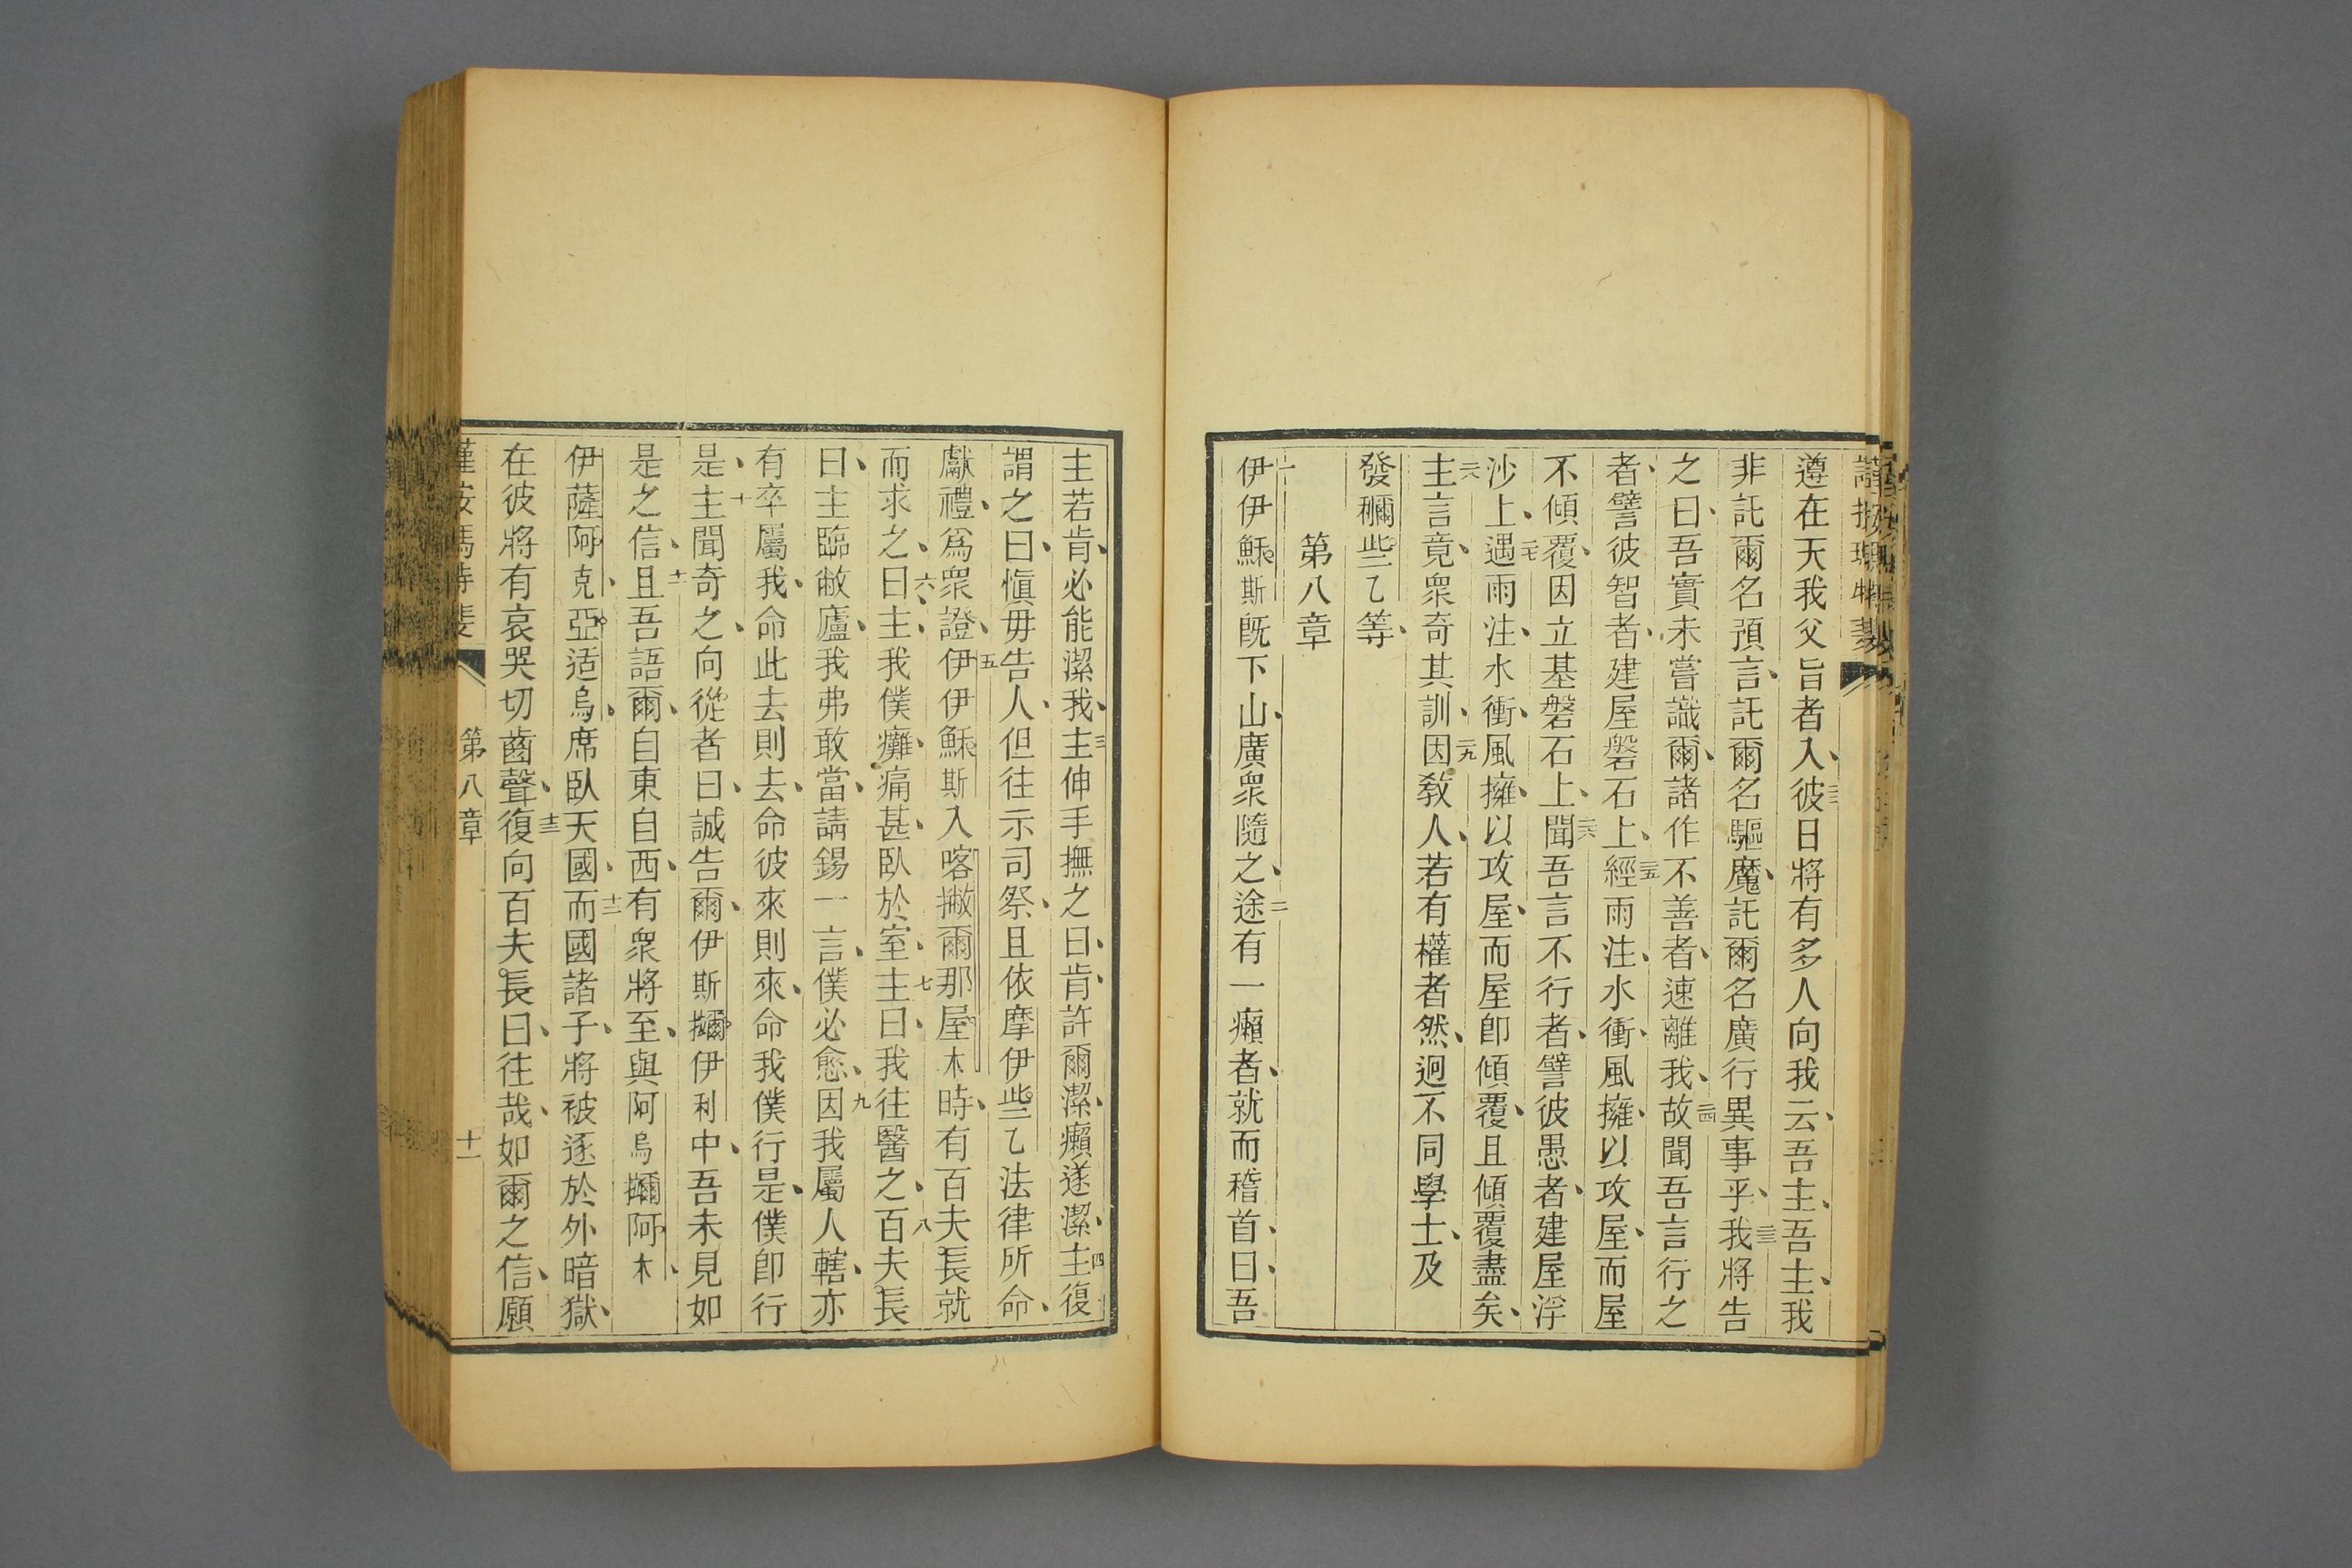 遵在天我父旨者入、三彼日將有多人向我云、吾主、吾主、我
非託爾名預言、託爾名驅魔、託爾名廣行異事乎、三我將告
之曰、吾實未嘗識爾、諸作不善者、速離我、三四故聞吾言行之
者、譬彼智者、建屋磐石上、三五經雨注、水衝、風擁、以攻屋、而屋
不傾覆、因立基磐石上、三六聞吾言不行者、譬彼愚者、建屋浮
沙上、三七遇雨注、水衝、風擁、以攻屋、而屋卽傾覆、且傾覆盡矣、
三八主言竟、衆奇其訓、三九因敎人、若有權者然、迥不同學士、及
發穪些乙等、
第八章
一伊伊穌斯旣下山、廣衆隨之、二途有一癩者、就而稽首、曰、吾
主若肯、必能潔我、三主伸手撫之、曰、肯、許爾潔、癩遂潔、四主復
謂之曰、愼毋告人、但往示司祭、且依摩伊些乙法律所命、
獻禮、爲衆證、五伊伊穌斯入喀撇爾那屋木時、有百夫長就
而求之、六曰、主、我僕癱、痛甚、臥於室、七主曰、我往醫之、八百夫長
曰、主臨敝廬、我弗敢當、請錫一言、僕必愈、九因我屬人轄、亦
有卒屬我、命此去則去、命彼來則來、命我僕行是、僕卽行
是、十主聞奇之、向從者曰、誠告爾、伊斯𢸬伊利中、吾未見如
是之信、十一且吾語爾、自東自西、有衆將至、與阿烏𢸬阿木、
伊薩阿克、亞适烏、席臥天國、十二而國諸子、將被逐於外暗獄、
在彼將有哀哭切齒聲、十三復向百夫長曰、往哉、如爾之信、願
第八章
十一